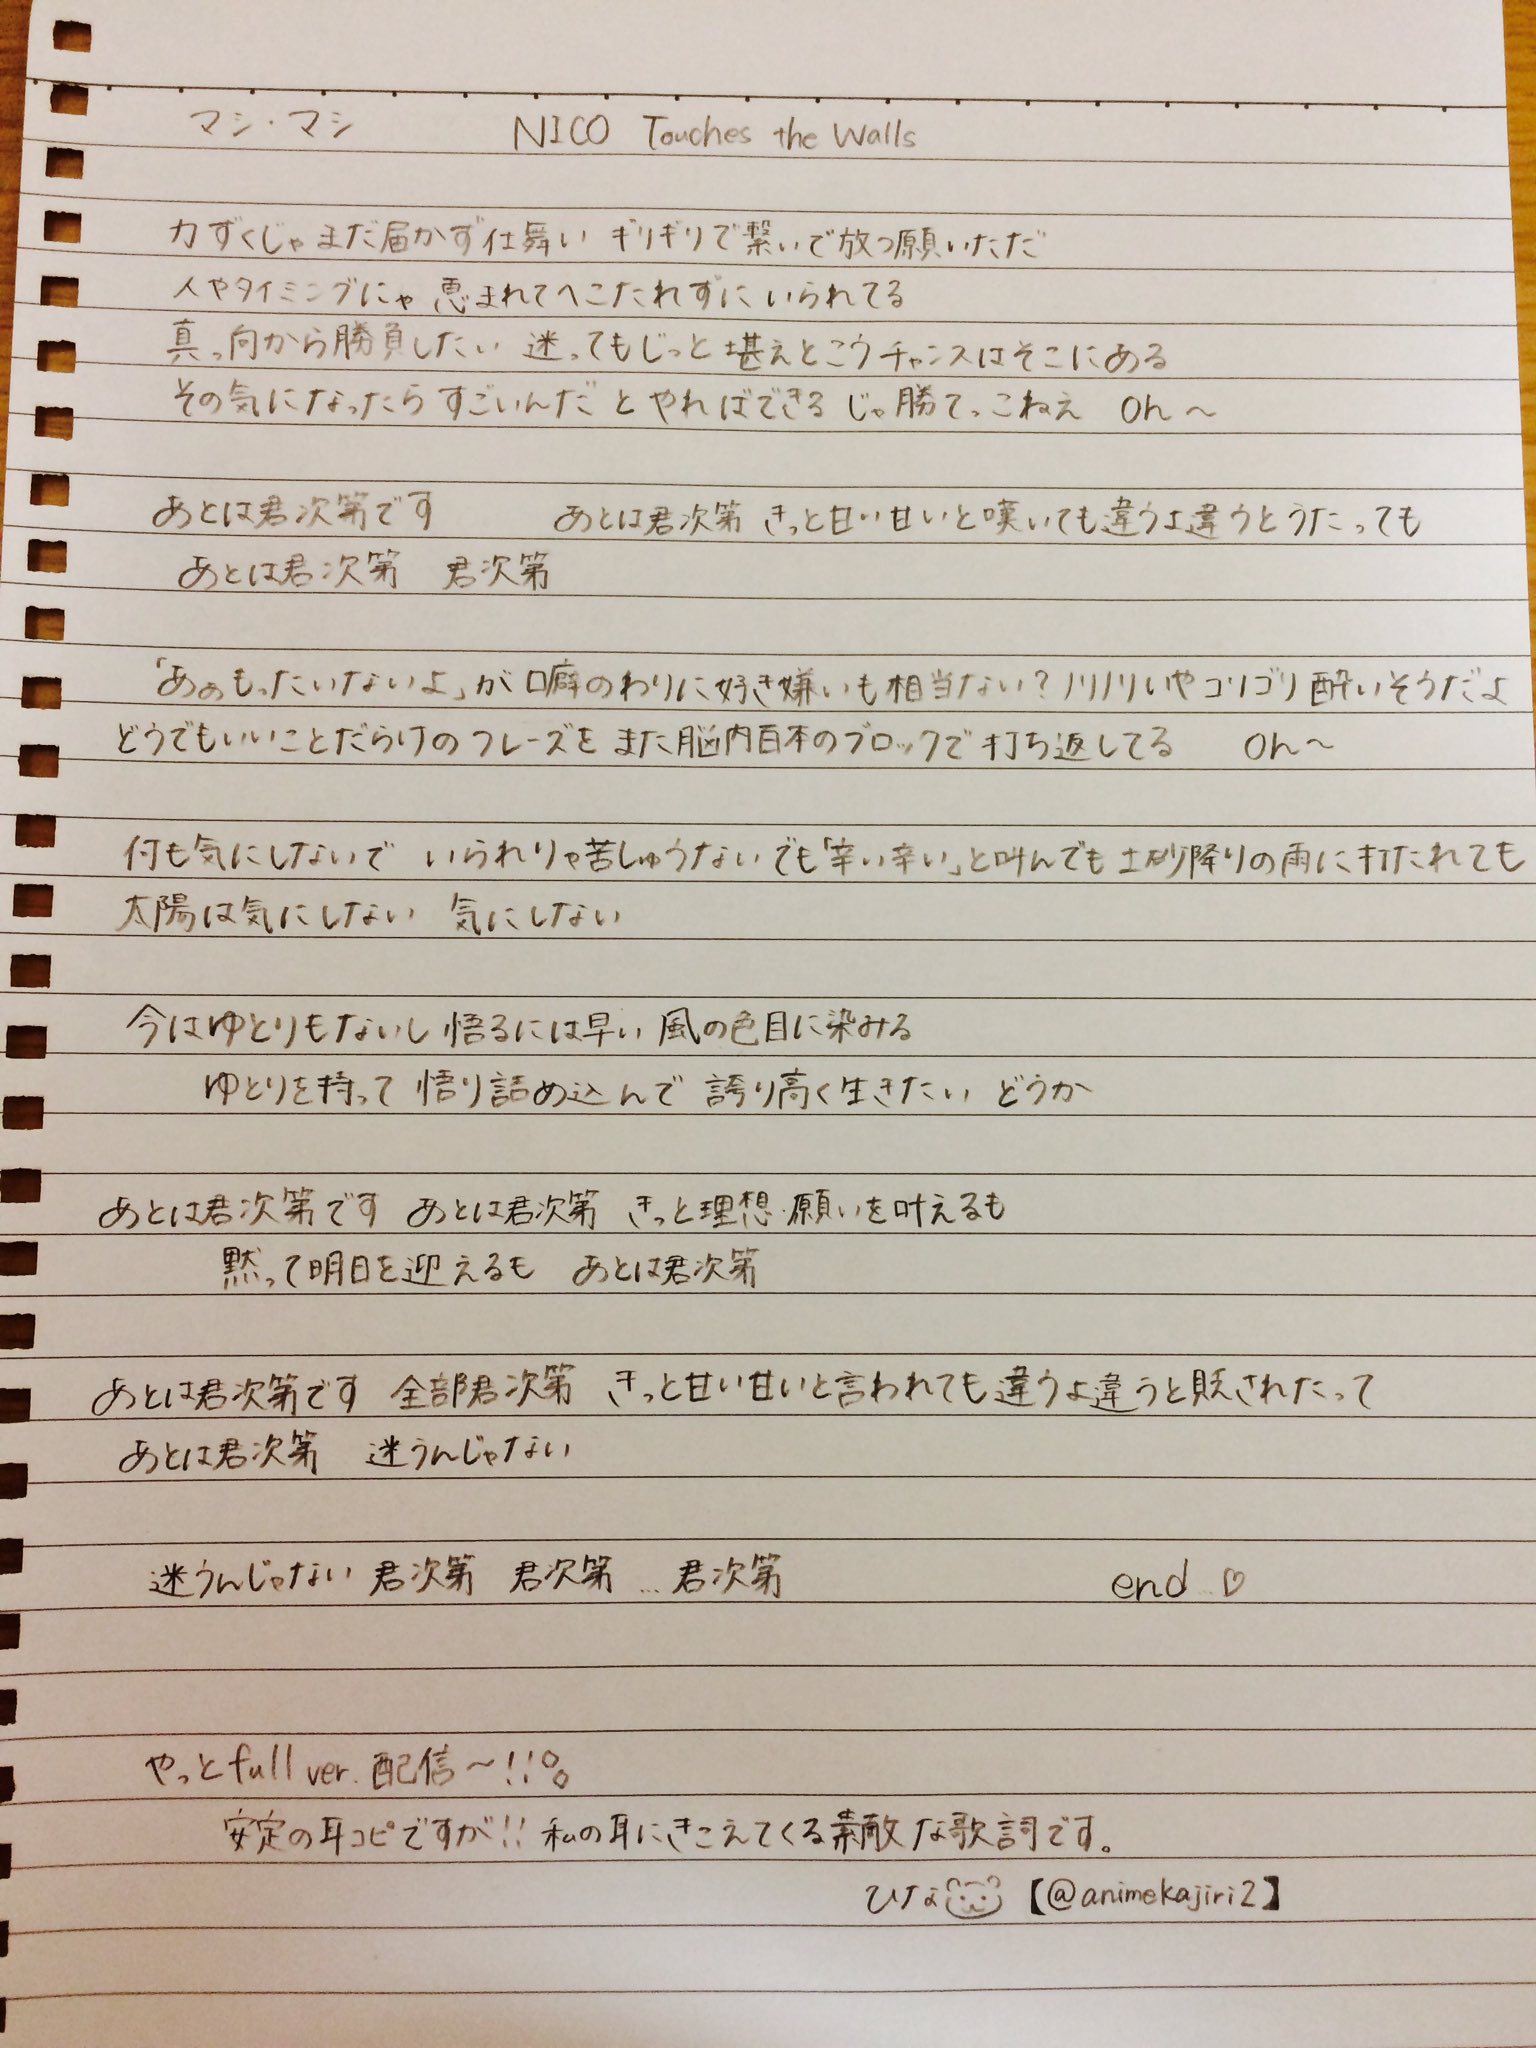 マシ・マシ NICO Touches the Walls
力ずくじゃまだ届かず仕舞い ギリギリで繋いで放つ願いただ
人やタイミングにゃ恵まれてへこたれずにいられてる
真っ向から勝負したい 迷ってもじっと堪えとこうチャンスはそこにある
その気になったらすごいんだ とやればできるじゃ勝てっこねえ Oh～
あとは君次第です あとは君次第 きっと甘い甘いと嘆いても違うよ違うとうたっても
あとは君次第 君次第
「あぁもったいないよ」が口癖のわりに好き嫌いも相当ない?ノリノリいやゴリゴリ酔いそうだよ
どうでもいいことだらけのフレーズをまた脳内百本のブロックで打ち返してる Oh～
何も気にしないで いられりゃ苦しゅうないでも「辛い辛い」と叫んでも土砂降りの雨に打たれても
太陽は気にしない 気にしない
今はゆとりもないし 悟るには早い 風の色目に染みる
ゆとりを持って 悟り詰め込んで 誇り高く生きたい どうか
あとは君次第です あとは君次第 きっと理想・願いを叶えるも
黙って明日を迎えるも あとは君次第
あとは君次第です 全部君次第 きっと甘い甘いと言われても違うよ違うと貶されたって
あとは君次第 迷うんじゃない
迷うんじゃない 君次第 君次第 … 君次第 end…♡
やっとfull ver. 配信～!!。
安定の耳コピですが!! 私の耳にきこえてくる素敵な歌詞です。
ひな【@animekajiri2】